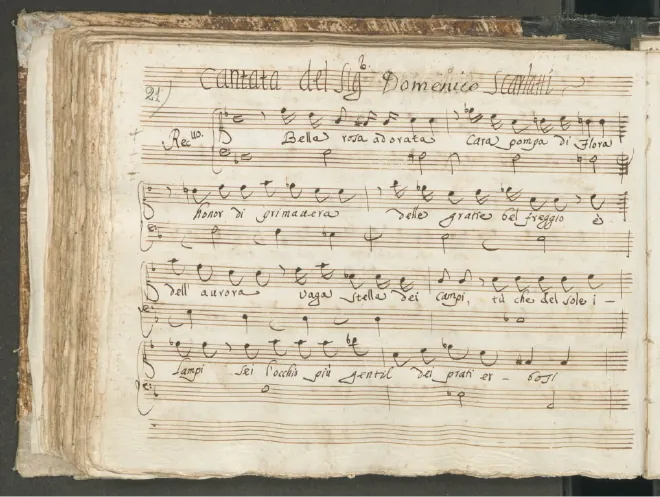 Cantata del Sig.r Domenico Scarlatti
21)
Rec.uo. Bella rosa adorata Cara pompa di Flora
honor di primavera delle gratie bel freggio e
dell' aurora vaga stella dei campi, tù che del sole i -
lampi sei l'occhio più gentil dei prati er - bosi